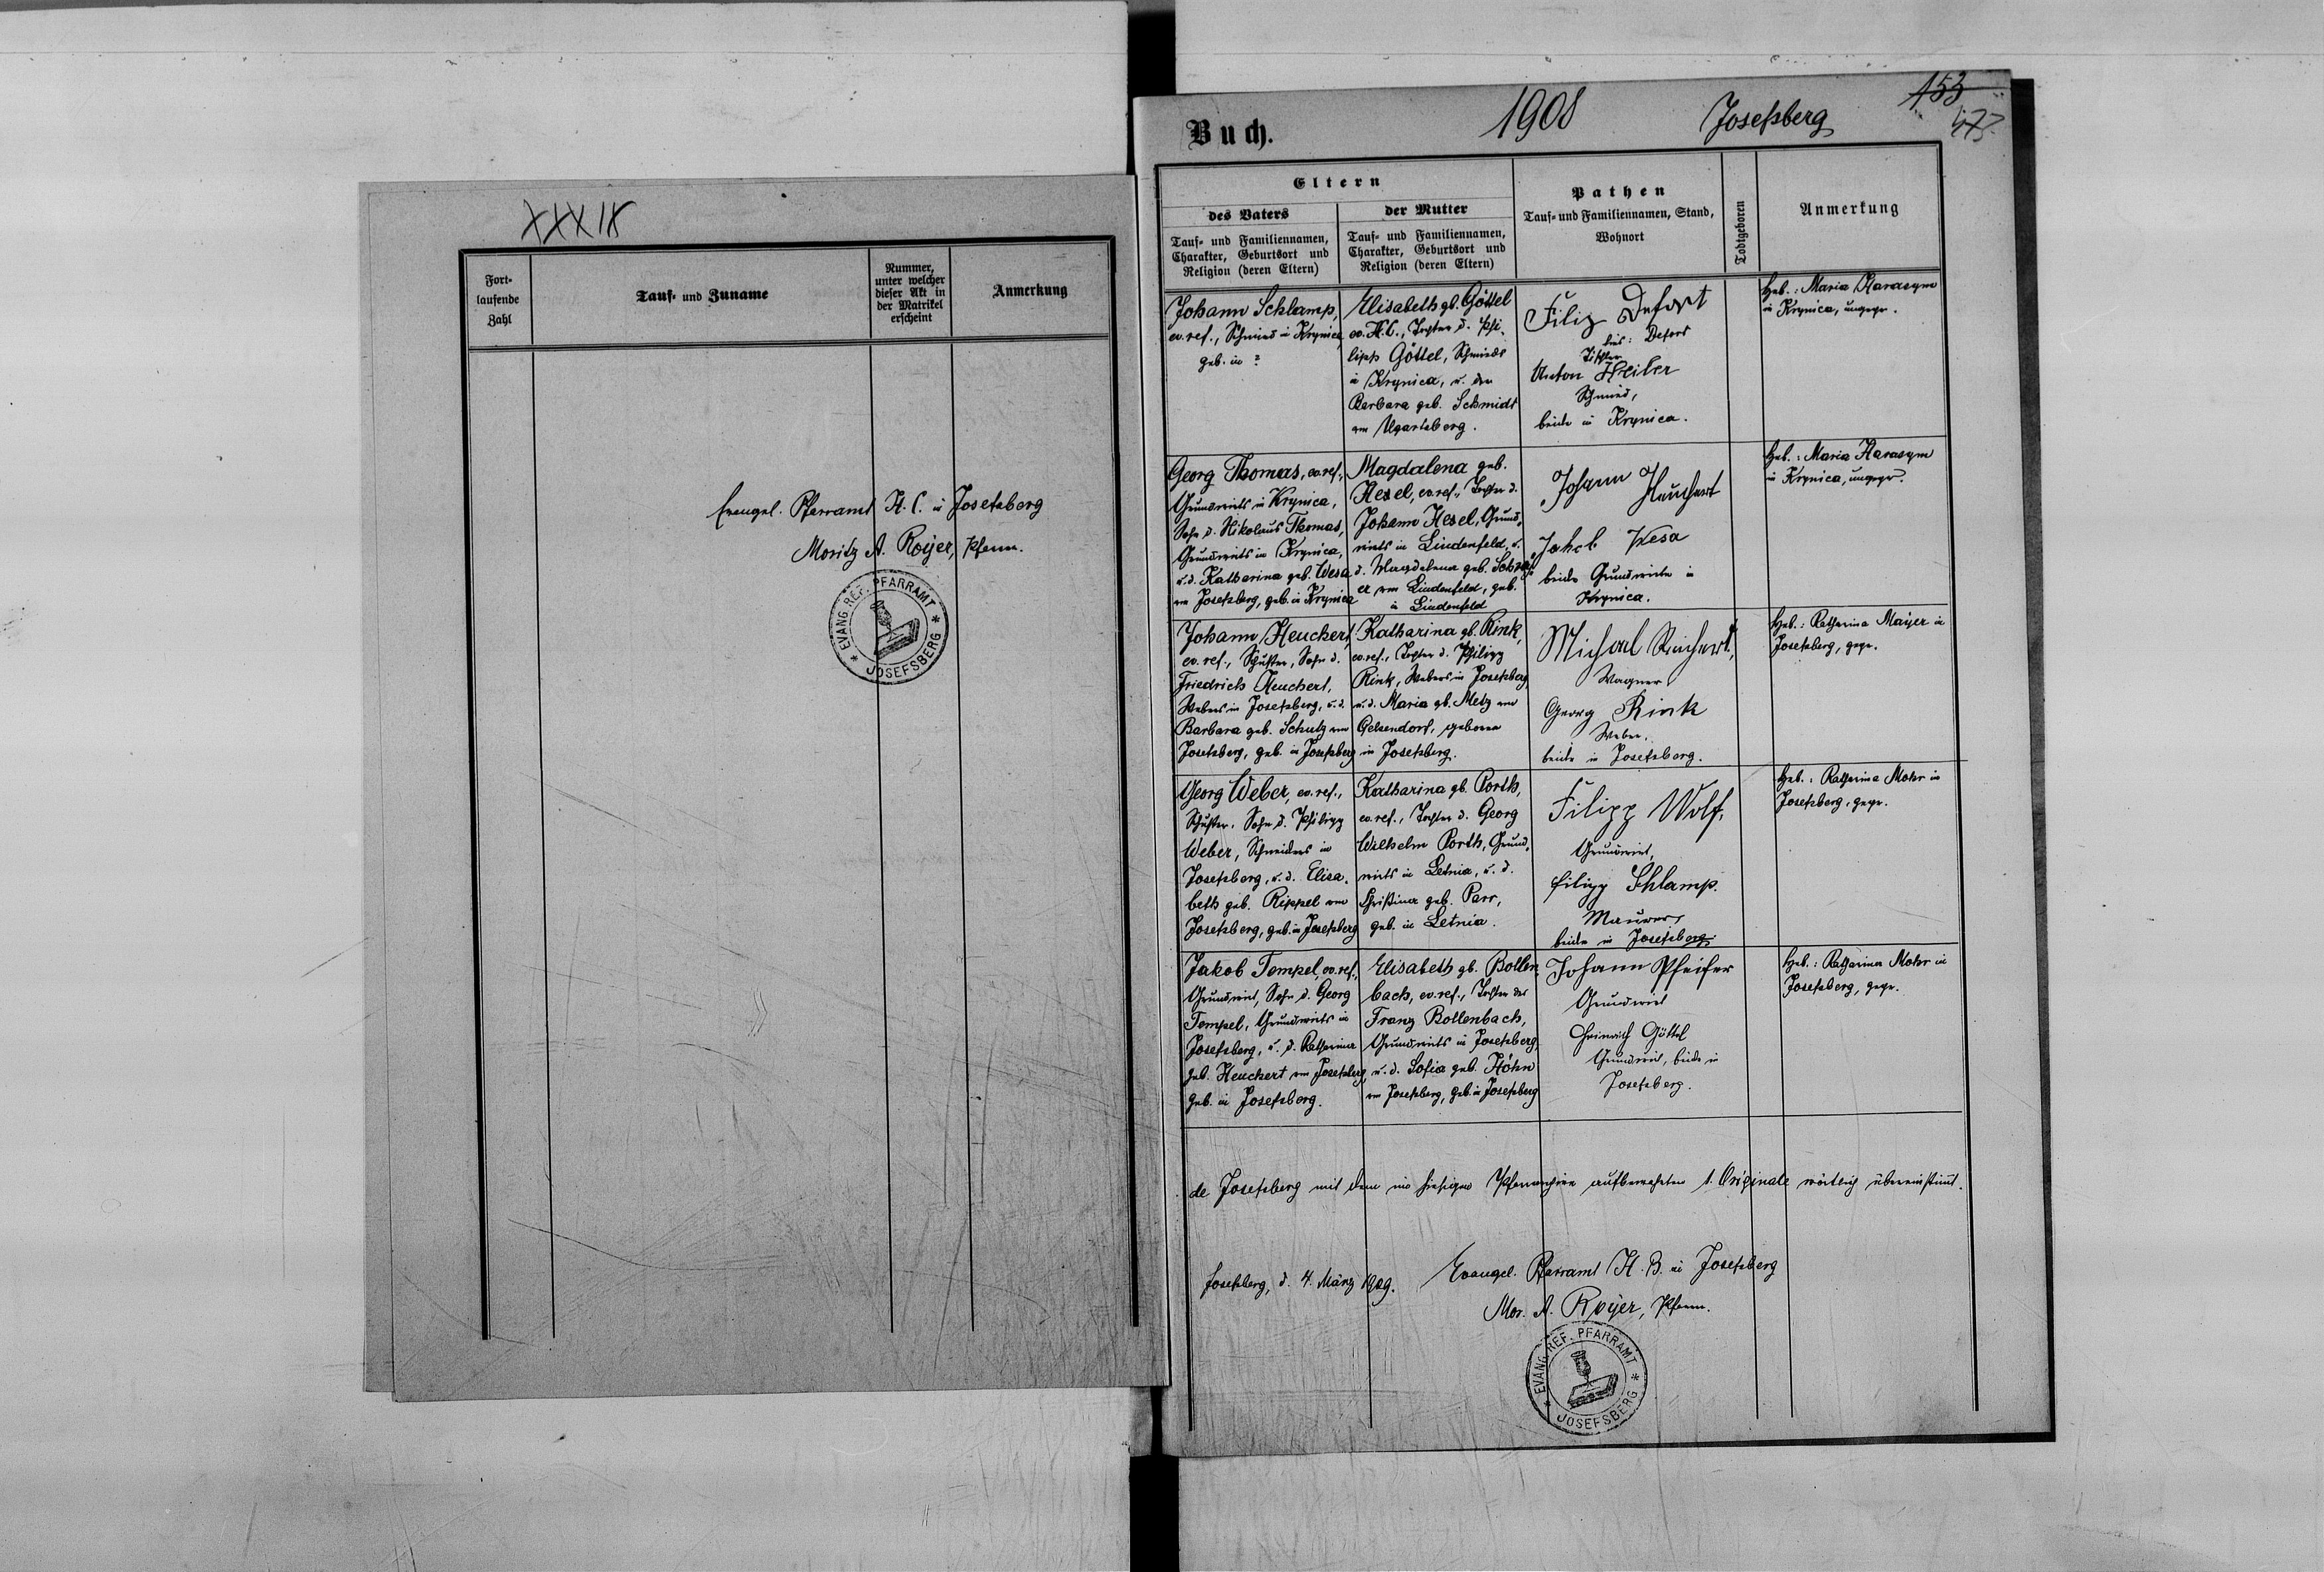 XXXIX
Fort-
laufende
Zahl
Tauf- und Zuname
Nummer,
unter welcher
dieser Akt in
der Matrikel
erscheint
Anmerkung
Evangel. Pfarramt H. C. in Josefsberg
Moritz A. Royer, Pfarrer.
* EVANG. REF. PFARRAMT *
JOSEFSBERG
Buch.
1908
Josefsberg
153
Eltern
des Vaters
Tauf- und Familiennamen,
Charakter, Geburtsort und
Religion (deren Eltern)
der Mutter
Tauf- und Familiennamen,
Charakter, Geburtsort und
Religion (deren Eltern)
Pathen
Tauf- und Familiennamen, Stand,
Wohnort
Todtgeboren
Anmerkung
Johann Schlamp,
ev. ref., Schmied in Krynica,
geb. in ?
Elisabeth gb. Göttel
ev. H.C., Tochter d. Phi-
lipp Göttel, Schmieds
in Krynica, u. der
Barbara geb. Schmidt
von Ugartsberg.
Filip Defort
lies: Defort
Tischler
Anton Heiler
Schmied,
beide in Krynica.
Heb.: Maria Harasym
in Krynica, ungepr.
Georg Thomas, ev. ref.,
Grundwirts in Krynica,
Sohn d. Nikolaus Thomas,
Grundwirts in Krynica,
u. d. Katharina geb. Wesa
von Josefsberg, geb. in Krynica
Magdalena geb.
Hesel, ev. ref., Tochter d.
Johann Hesel, Grund-
wirts in Lindenfeld, u.
d. Magdalena geb.
er von Lindenfeld, geb.
in Lindenfeld
Johann Heuchert
Jakob Wesa
beide Grundwirte in
Krynica.
Heb.: Maria Harasym
in Krynica, ungepr.
Johann Heuchert,
ev. ref., Schuster, Sohn d.
Friedrich Heuchert,
Webers in Josefsberg, u. d.
Barbara geb. Schutz von
Josefsberg, geb. in Josefsberg
Katharina gb. Rink,
ev. ref., Tochter d. Philipp
Rink, Webers in Josefsberg,
u. d. Maria gb. Metz von
Gelsendorf, geboren
in Josefsberg.
Michael Reichert,
Wagner
Georg Rink
Weber,
beide in Josefsberg.
Heb.: Katharina Mayer in
Josefsberg, gepr.
Georg Weber, ev. ref.,
Schuster, Sohn d. Philipp
Weber, Schneiders in
Josefsberg, u. d. Elisa-
beth geb. Rippel von
Josefsberg, geb. in Josefsberg
Katharina gb. Porth,
ev. ref., Tochter d. Georg
Wilhelm Porth, Grund-
wirts in Letnia, u. d.
Christina geb. Parr,
geb. in Letnia.
Filipp Wolf,
Grundwirt,
Filipp Schlamp.
Maurer,
beide in Josefsberg.
Heb.: Katharina Mohr in
Josefsberg, gepr.
Jakob Tempel, ev. ref.,
Grundwirt, Sohn d. Georg
Tempel, Grundwirts in
Josefsberg, u. d. Katharina
geb. Heuchert von Josefsberg,
geb. in Josefsberg.
Elisabeth gb. Bollen
bach, ev. ref., Tochter des
Franz Bollenbach,
Grundwirts in Josefsberg,
u. d. Sofia geb. Höhn
von Josefsberg, geb. in Josefsberg
Johann Pfeifer
Grundwirt
Heinrich Göttel
Grundwirt, beide in
Josefsberg.
Heb.: Katharina Mohr in
Josefsberg, gepr.
de Josefsberg mit dem im hiesigen Pfarrarchive aufbewahrten 1. Originale wörtlich übereinstimmt.
Josefsberg, d. 4. März 1909.
Evangel. Pfarramt H. B. in Josefsberg
Mor. A. Royer, Pfarrer.
* EVANG. REF. PFARRAMT *
JOSEFSBERG